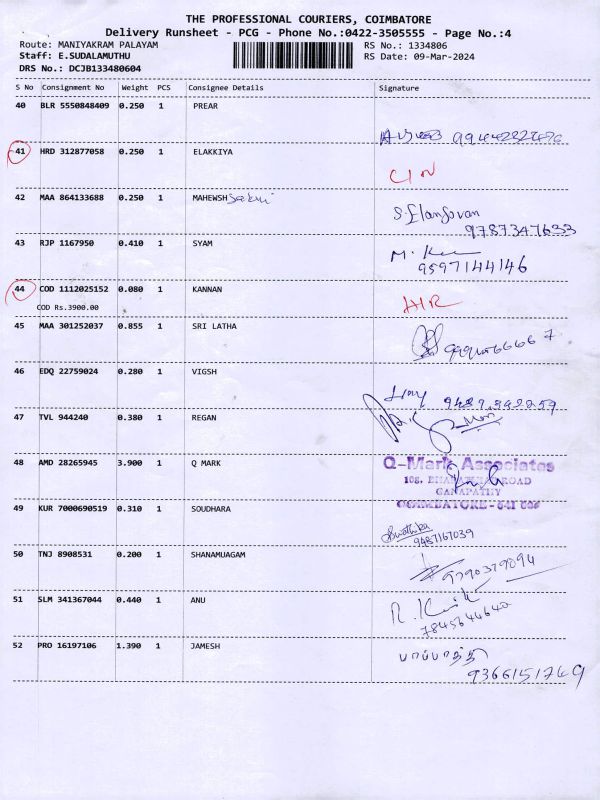 THE PROFESSIONAL COURIERS, COIMBATORE
Delivery Runsheet - PCG - Phone No.:0422-3505555 - Page No.:4
Route: MANIYAKRAM PALAYAM RS No.: 1334806
Staff: E.SUDALAMUTHU RS Date: 09-Mar-2024
DRS No.: DCJB133480604
S No Consignment No Weight PCS Consignee Details Signature
40 BLR 5550848409 0.250 1 PREAR
41 HRD 312877058 0.250 1 ELAKKIYA
CIN
42 MAA 864133688 0.250 1 MAHEWSH
S. Elangovan
9787347633
43 RJP 1167950 0.410 1 SYAM
9597144146
44 COD 1112025152 0.080 1 KANNAN
COD Rs.3900.00
HIR
45 MAA 301252037 0.855 1 SRI LATHA
46 EDQ 22759024 0.280 1 VIGSH
47 TVL 944240 0.380 1 REGAN
48 AMD 28265945 3.900 1 Q MARK
Q-Mark Associates
ROAD
GANAPATHY
COIMBATORE - 641 006
49 KUR 7000690519 0.310 1 SOUDHARA
Swathika
9487167039
50 TNJ 8908531 0.200 1 SHANAMUAGAM
9790379094
51 SLM 341367044 0.440 1 ANU
7845644640
52 PRO 16197106 1.390 1 JAMESH
பாப்பாத்தி
9366151749